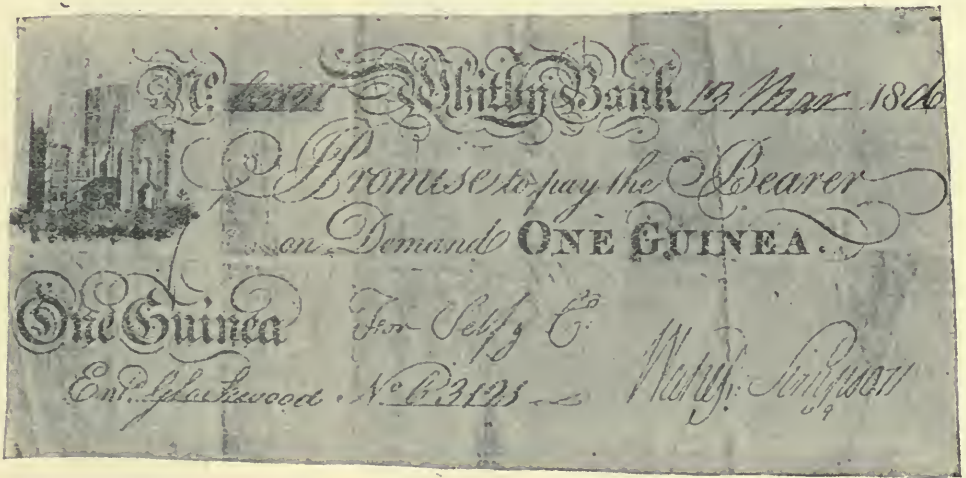 No. Whitby Bank 13 Mar 1806
I Promise to pay the Bearer
on Demand ONE GUINEA.
One Guinea For Self & Co
Entd. No B3121 Simpson